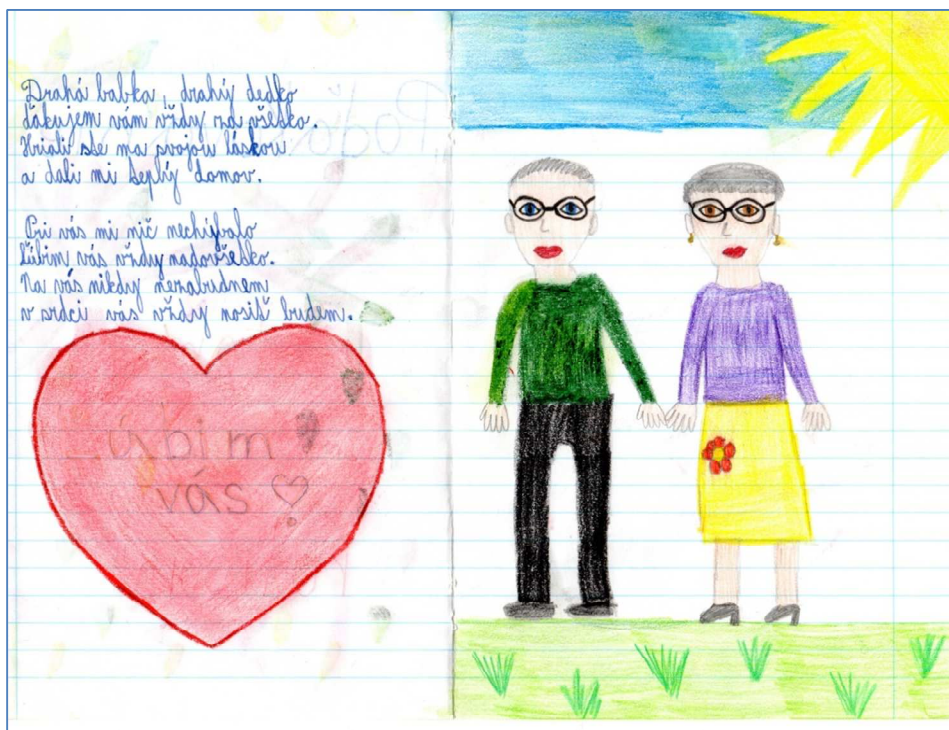 Drahá babka, drahý dedko
ďakujem vám vždy za všetko.
Hriali ste ma svojou láskou
a dali mi teplý domov.
Pri vás mi nič nechýbalo
ľúbim vás vždy nadovšetko.
Na vás nikdy nezabudnem
v srdci vás vždy nosiť budem.
Ľúbim
vás